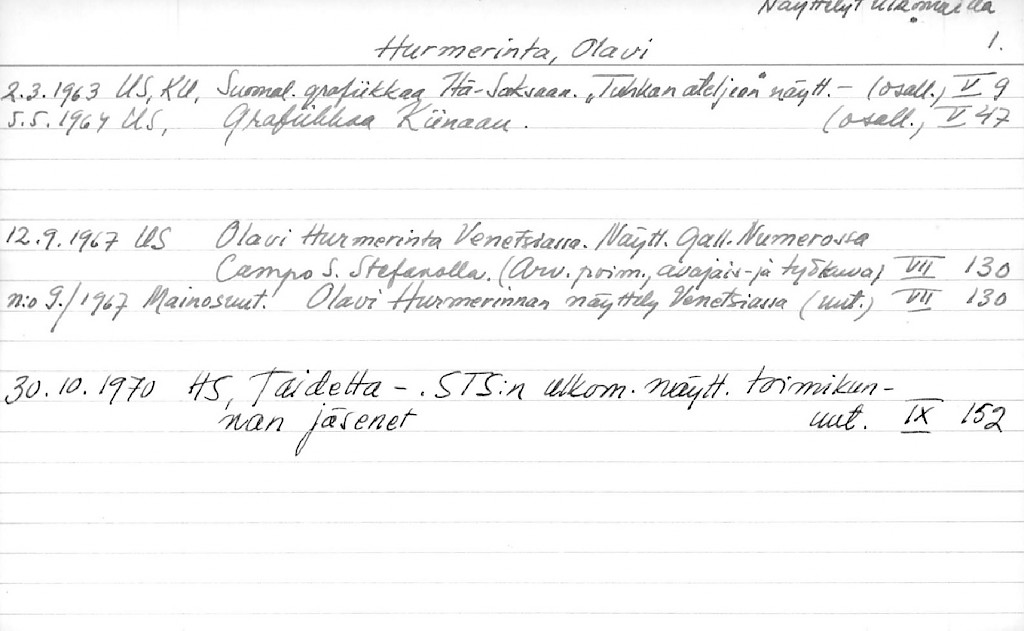 Näyttelyt ulkomailla
1.
Hurmerinta, Olavi
2.3.1963 US, KU, Suomal. grafiikkaa Itä-Saksaan. „Tuhkan ateljeen" näytt. – (osall.) V 9
5.5.1964 US, Grafiikkaa Kiinaan. (osall.) V 47
12.9.1967 US Olavi Hurmerinta Venetsiassa. Näytt. Gall. Numerossa
Campo S. Stefanolla. (Arv. poim., avajais- ja työkuva) VII 130
n:o 9./1967 Mainosuut. Olavi Hurmerinnan näyttely Venetsiassa (uut.) VII 130
30.10.1970 HS, Taidetta – . STS:n ulkom. näytt. toimikun-
nan jäsenet uut. IX 152